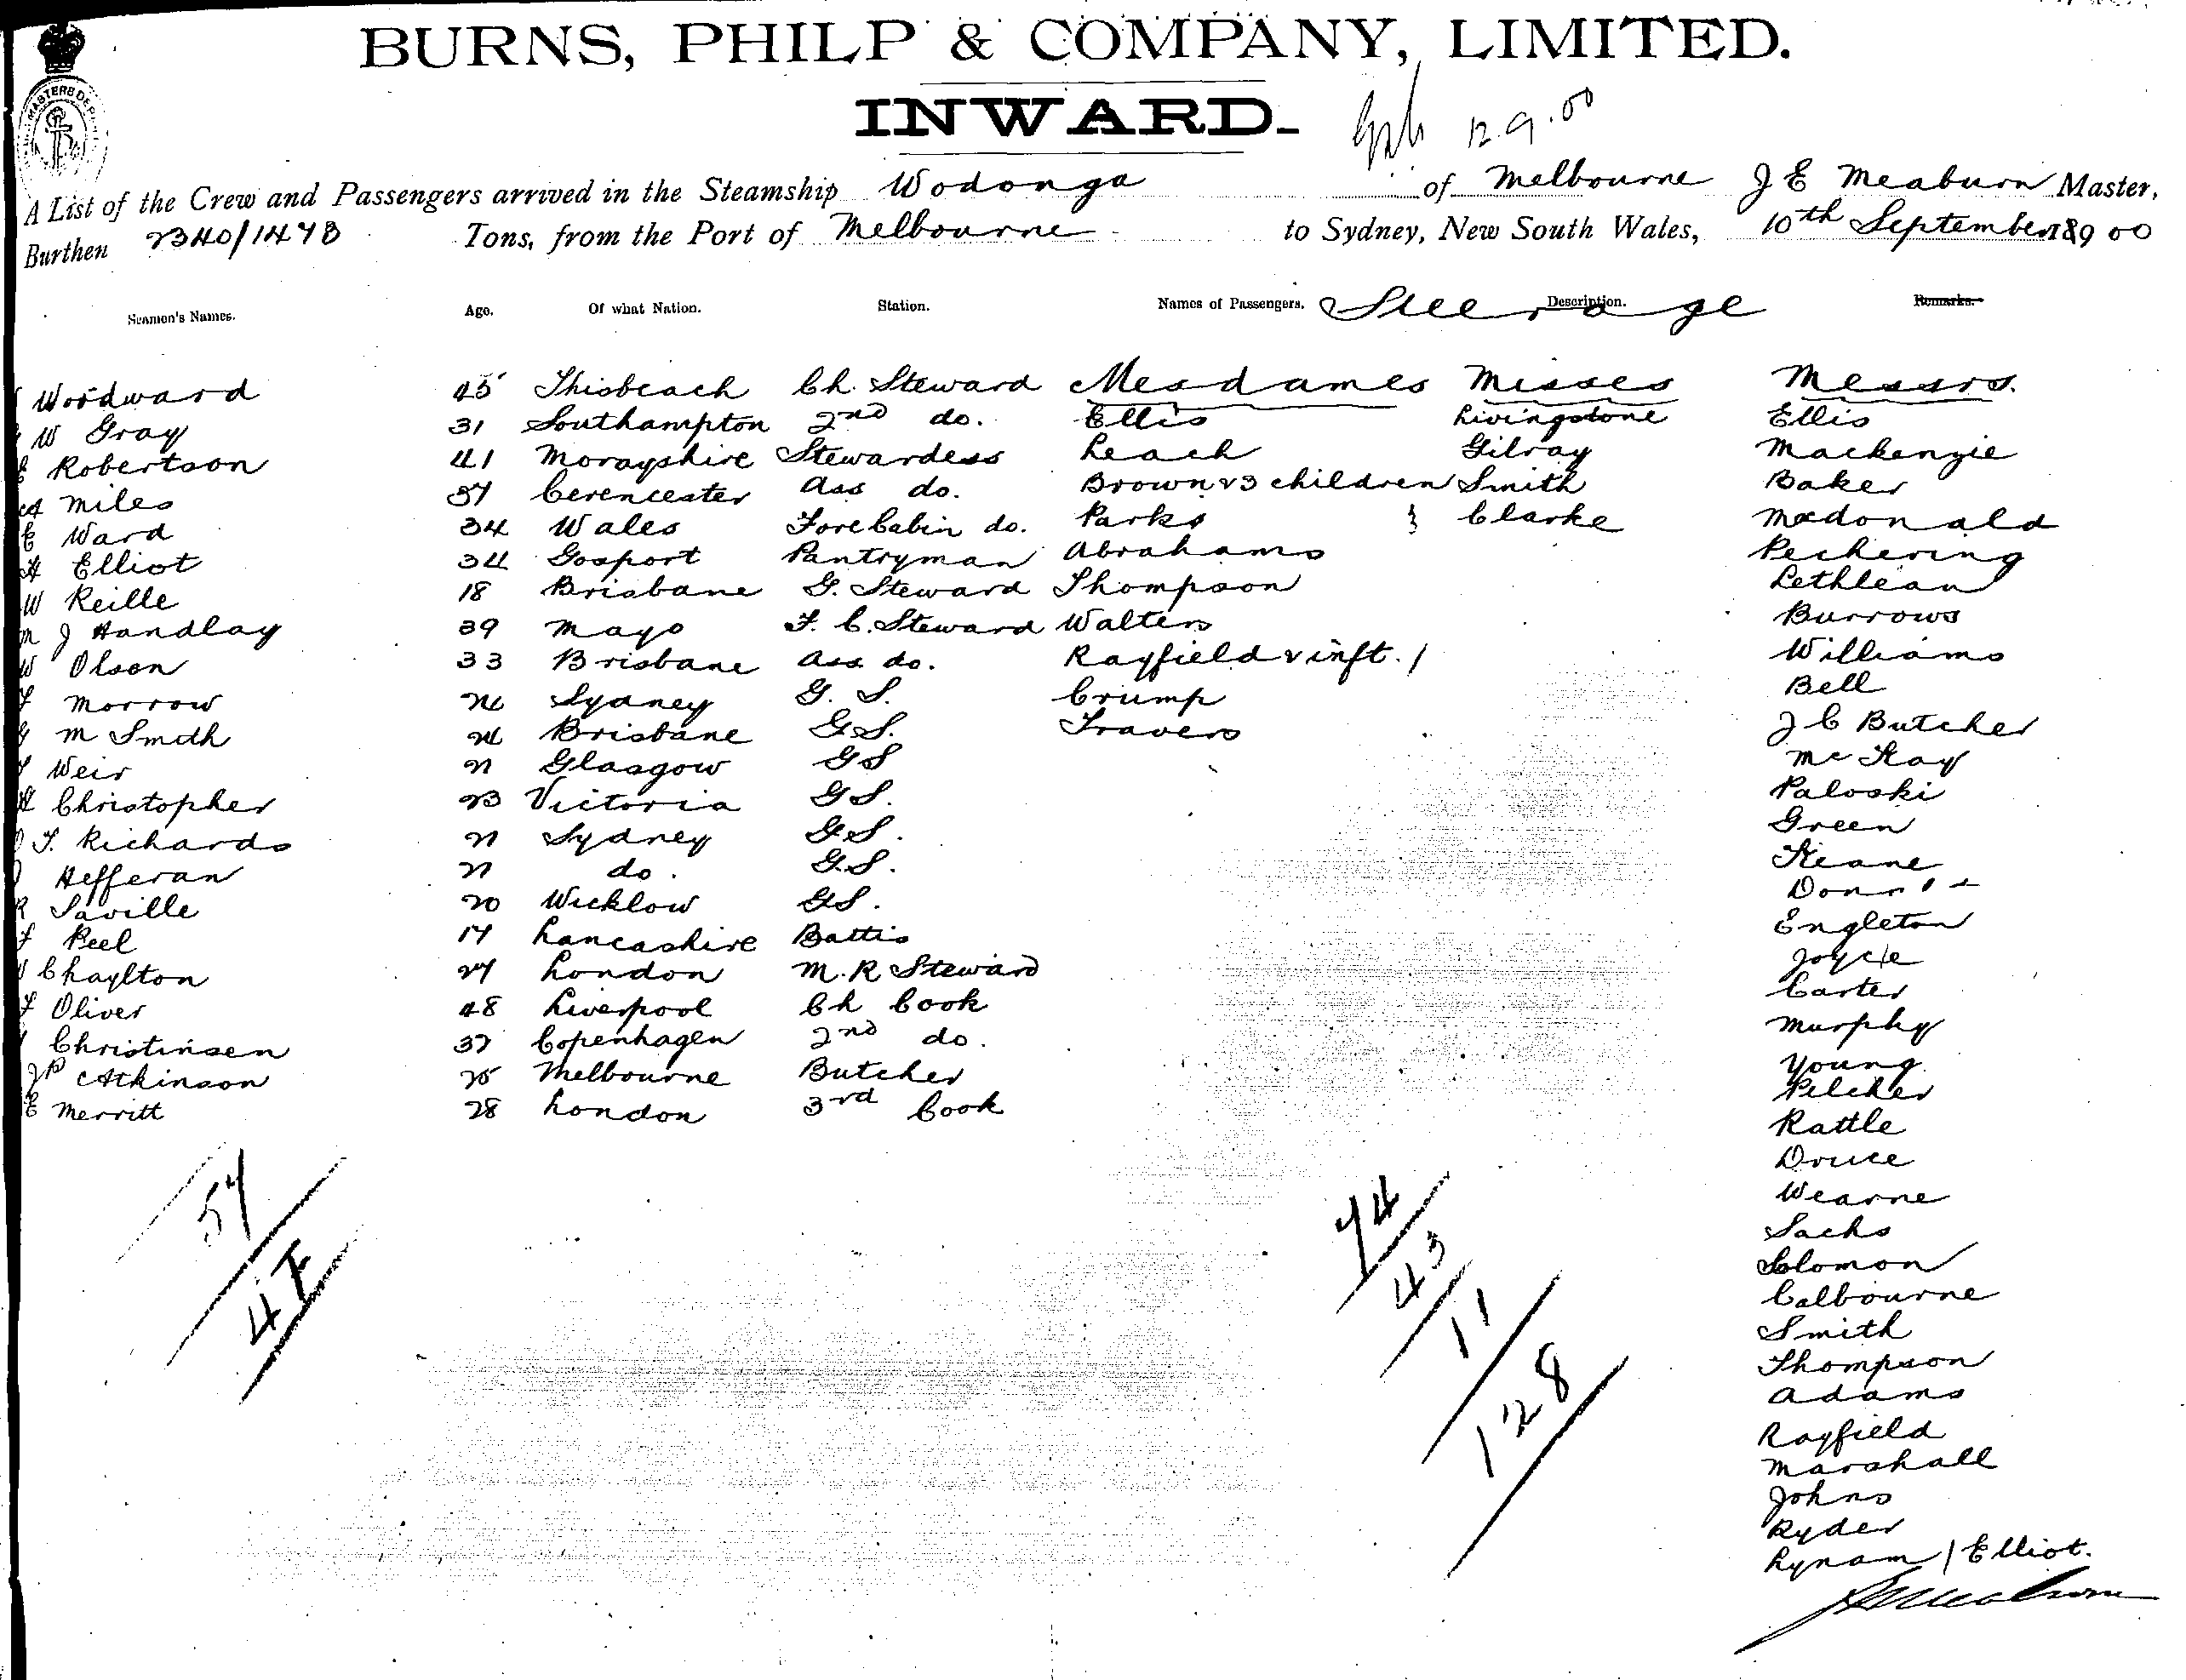 BURNS, PHILP & COMPANY, LIMITED.
INWARD.
12.9.00
A List of the Crew and Passengers arrived in the Steamship Wodonga of Melbourne J E Meaburn Master,
Burthen 2340/1478 Tons, from the Port of Melbourne to Sydney, New South Wales, 10th September 189 00
Seamen's Names. Age. Of what Nation. Station. Names of Passengers. Steerage Description. Remarks.
Woodward 45 Thisbeach Ch. Steward Mesdames Misses Messrs.
W Gray 31 Southampton 2nd do. Ellis Livingstone Ellis
E Robertson 41 Morayshire Stewardess Leach Gilray Mackenzie
A Miles 37 Cerencester Ass do. Brown & 3 children Smith Baker
E Ward 34 Wales Fore Cabin do. Parks } Clarke Macdonald
H Elliot 34 Gosport Pantryman Abrahams Peckering
W Reille 18 Brisbane G. Steward Thompson Lethlean
M J Handlay 39 Mayo F. C. Steward Walters Burrows
W Olsen 33 Brisbane Ass do. Rayfield & inft. 1 Williams
Morrow 24 Sydney G. S. Crump Bell
M Smith 24 Brisbane G.S. Travers J C Butcher
Weir 21 Glasgow G S McKay
H Christopher 23 Victoria G S. Paloski
T. Richards 21 Sydney G.S. Green
Hefferan 21 do. G.S. Keane
R Saville 20 Wicklow G.S.
Peel 17 Lancashire Battis Engleton
Chaylton 27 London M. R Steward Joyce
Oliver 48 Liverpool Ch Cook Carter
Christinsen 37 Copenhagen 2nd do. Murphy
JP Atkinson 25 Melbourne Butcher Young
E Merritt 28 London 3rd Cook Pilcher
Rattle
Druce
Wearne
Sachs
Solomon
Calbourne
Smith
Thompson
Adams
Rayfield
Marshall
Johns
Ryder
Lynam / Elliot.
57
47
74
43
11
128